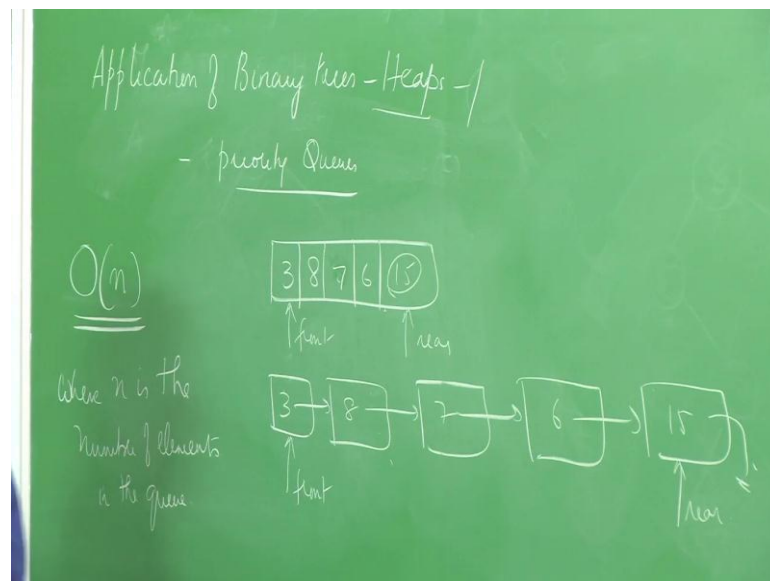 Application of Binary trees - Heaps - 1
- priority Queues
O(n)
3 8 7 6 15
front rear
where n is the
Number of elements
in the queue.
3 8 7 6 15
front
rear